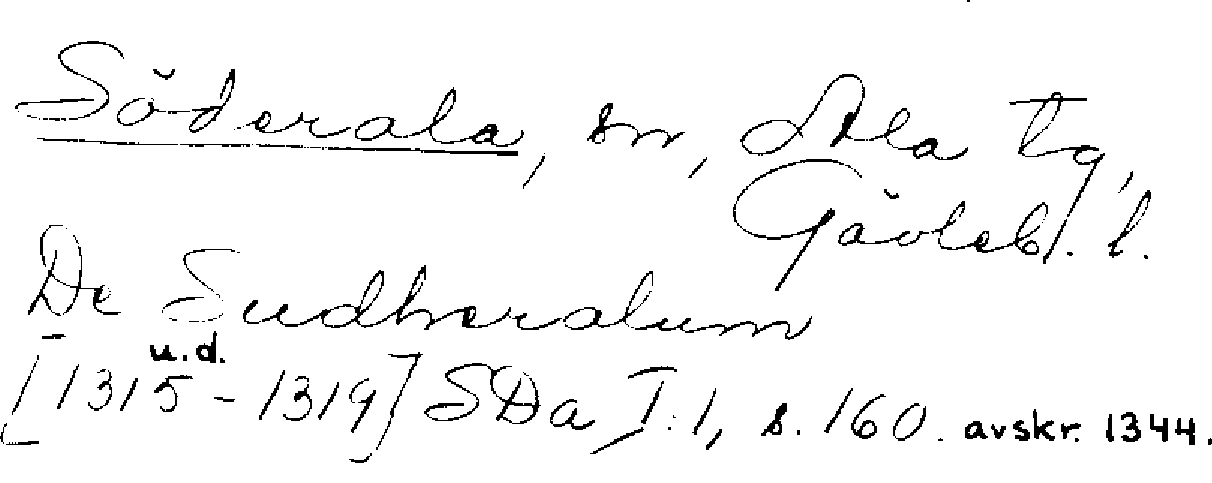 Söderala, sn, Ala tg,
Gävleb. l.
De Sudheralum
u.d.
[1315-1319] SDa I:1, s. 160. avskr. 1344.